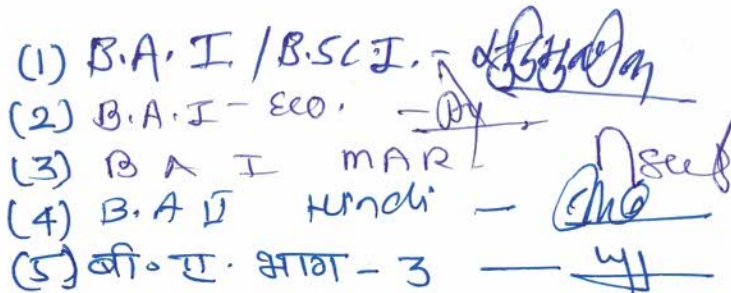 (1) B.A. I / B.SC I. -
(2) B.A. I - ECO. -
(3) B A I MAR
(4) B. A II Hindi -
(5) बी॰ ए. भाग - 3 -